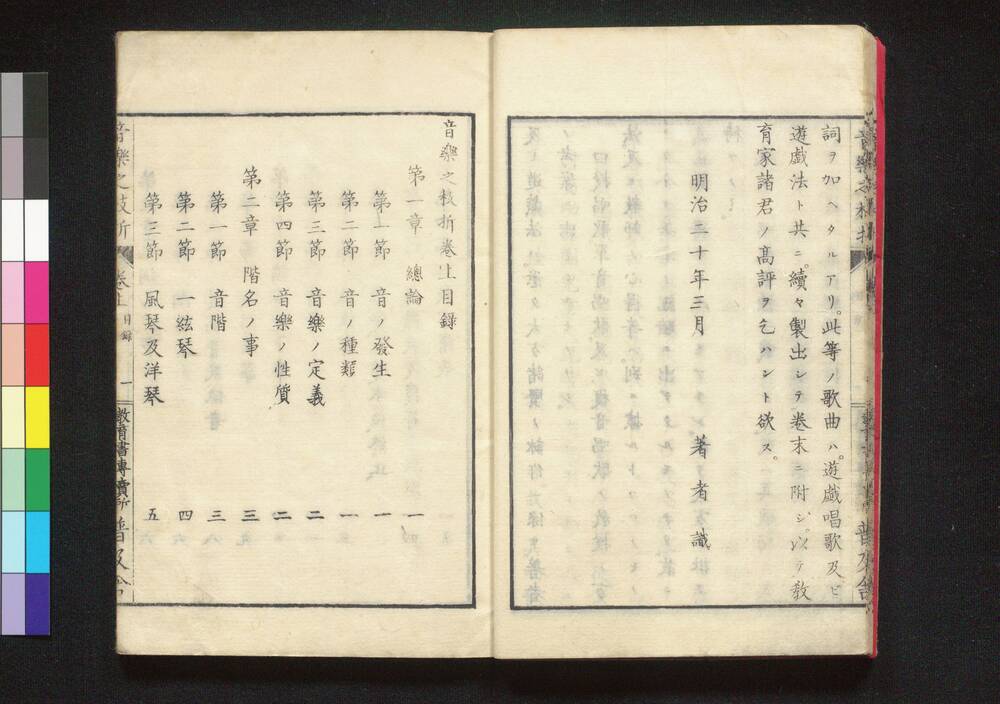 詞ヲ加ヘタルアリ。此等ノ歌曲ハ。遊戯唱歌及ビ
遊戯法ト共ニ。續々製出シテ卷末ニ附シ。以テ教
育家諸君ノ高評ヲ乞ハント欲ス。
明治二十年三月 著者識
音樂之枝折卷上目録
第一章 總論 一
第一節 音ノ發生 一
第二節 音ノ種類 一
第三節 音樂ノ定義 二
第四節 音樂ノ性質 二
第二章 階名ノ事 三
第一節 音階 三
第二節 一絃琴 四
第三節 風琴及洋琴 五
音樂之枝折 卷上 目録 一 教育書專賣所 普及舎